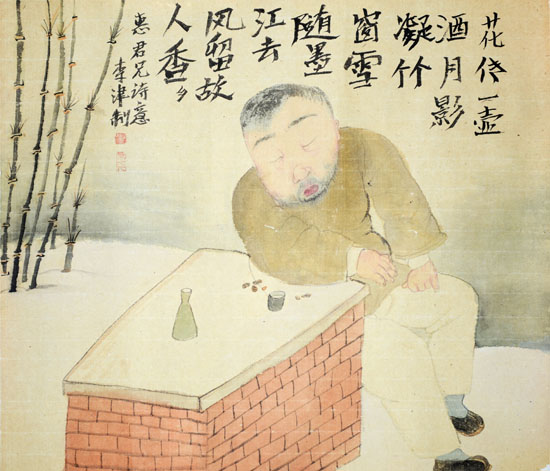 花一壶
酒月影
凝竹
窗雪
随墨
江去
风留故
人香
惠君兄诗意
李津制